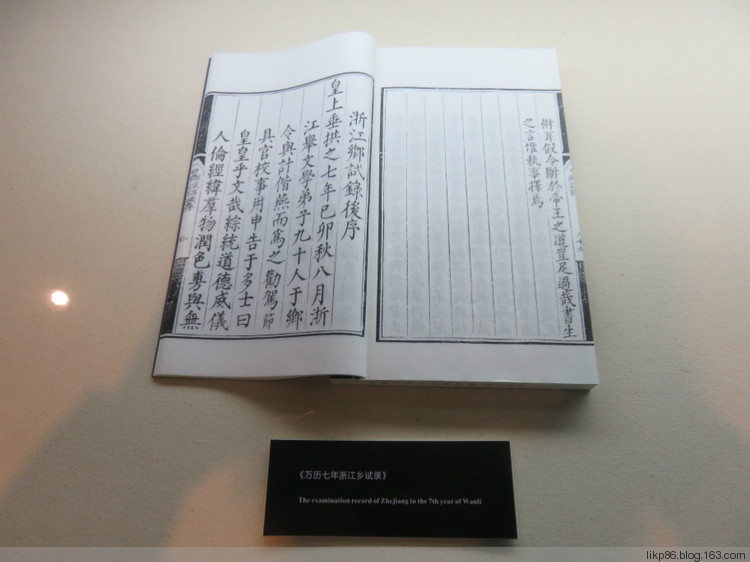 術耳假令斷於帝王之道豈足過哉書生
之言惟執事擇焉
浙江鄉試錄後序
皇上垂拱之七年己卯秋八月浙
江舉文學弟子九十人于鄉
令與計偕燕而爲之勸駕節
具官校事用申告于多士曰
皇皇乎文哉綜統道德威儀
人倫經緯羣物潤色專與無
《万历七年浙江乡试录》
The examination record of Zhejiang in the 7th year of Wanli
likp86.blog.163.com